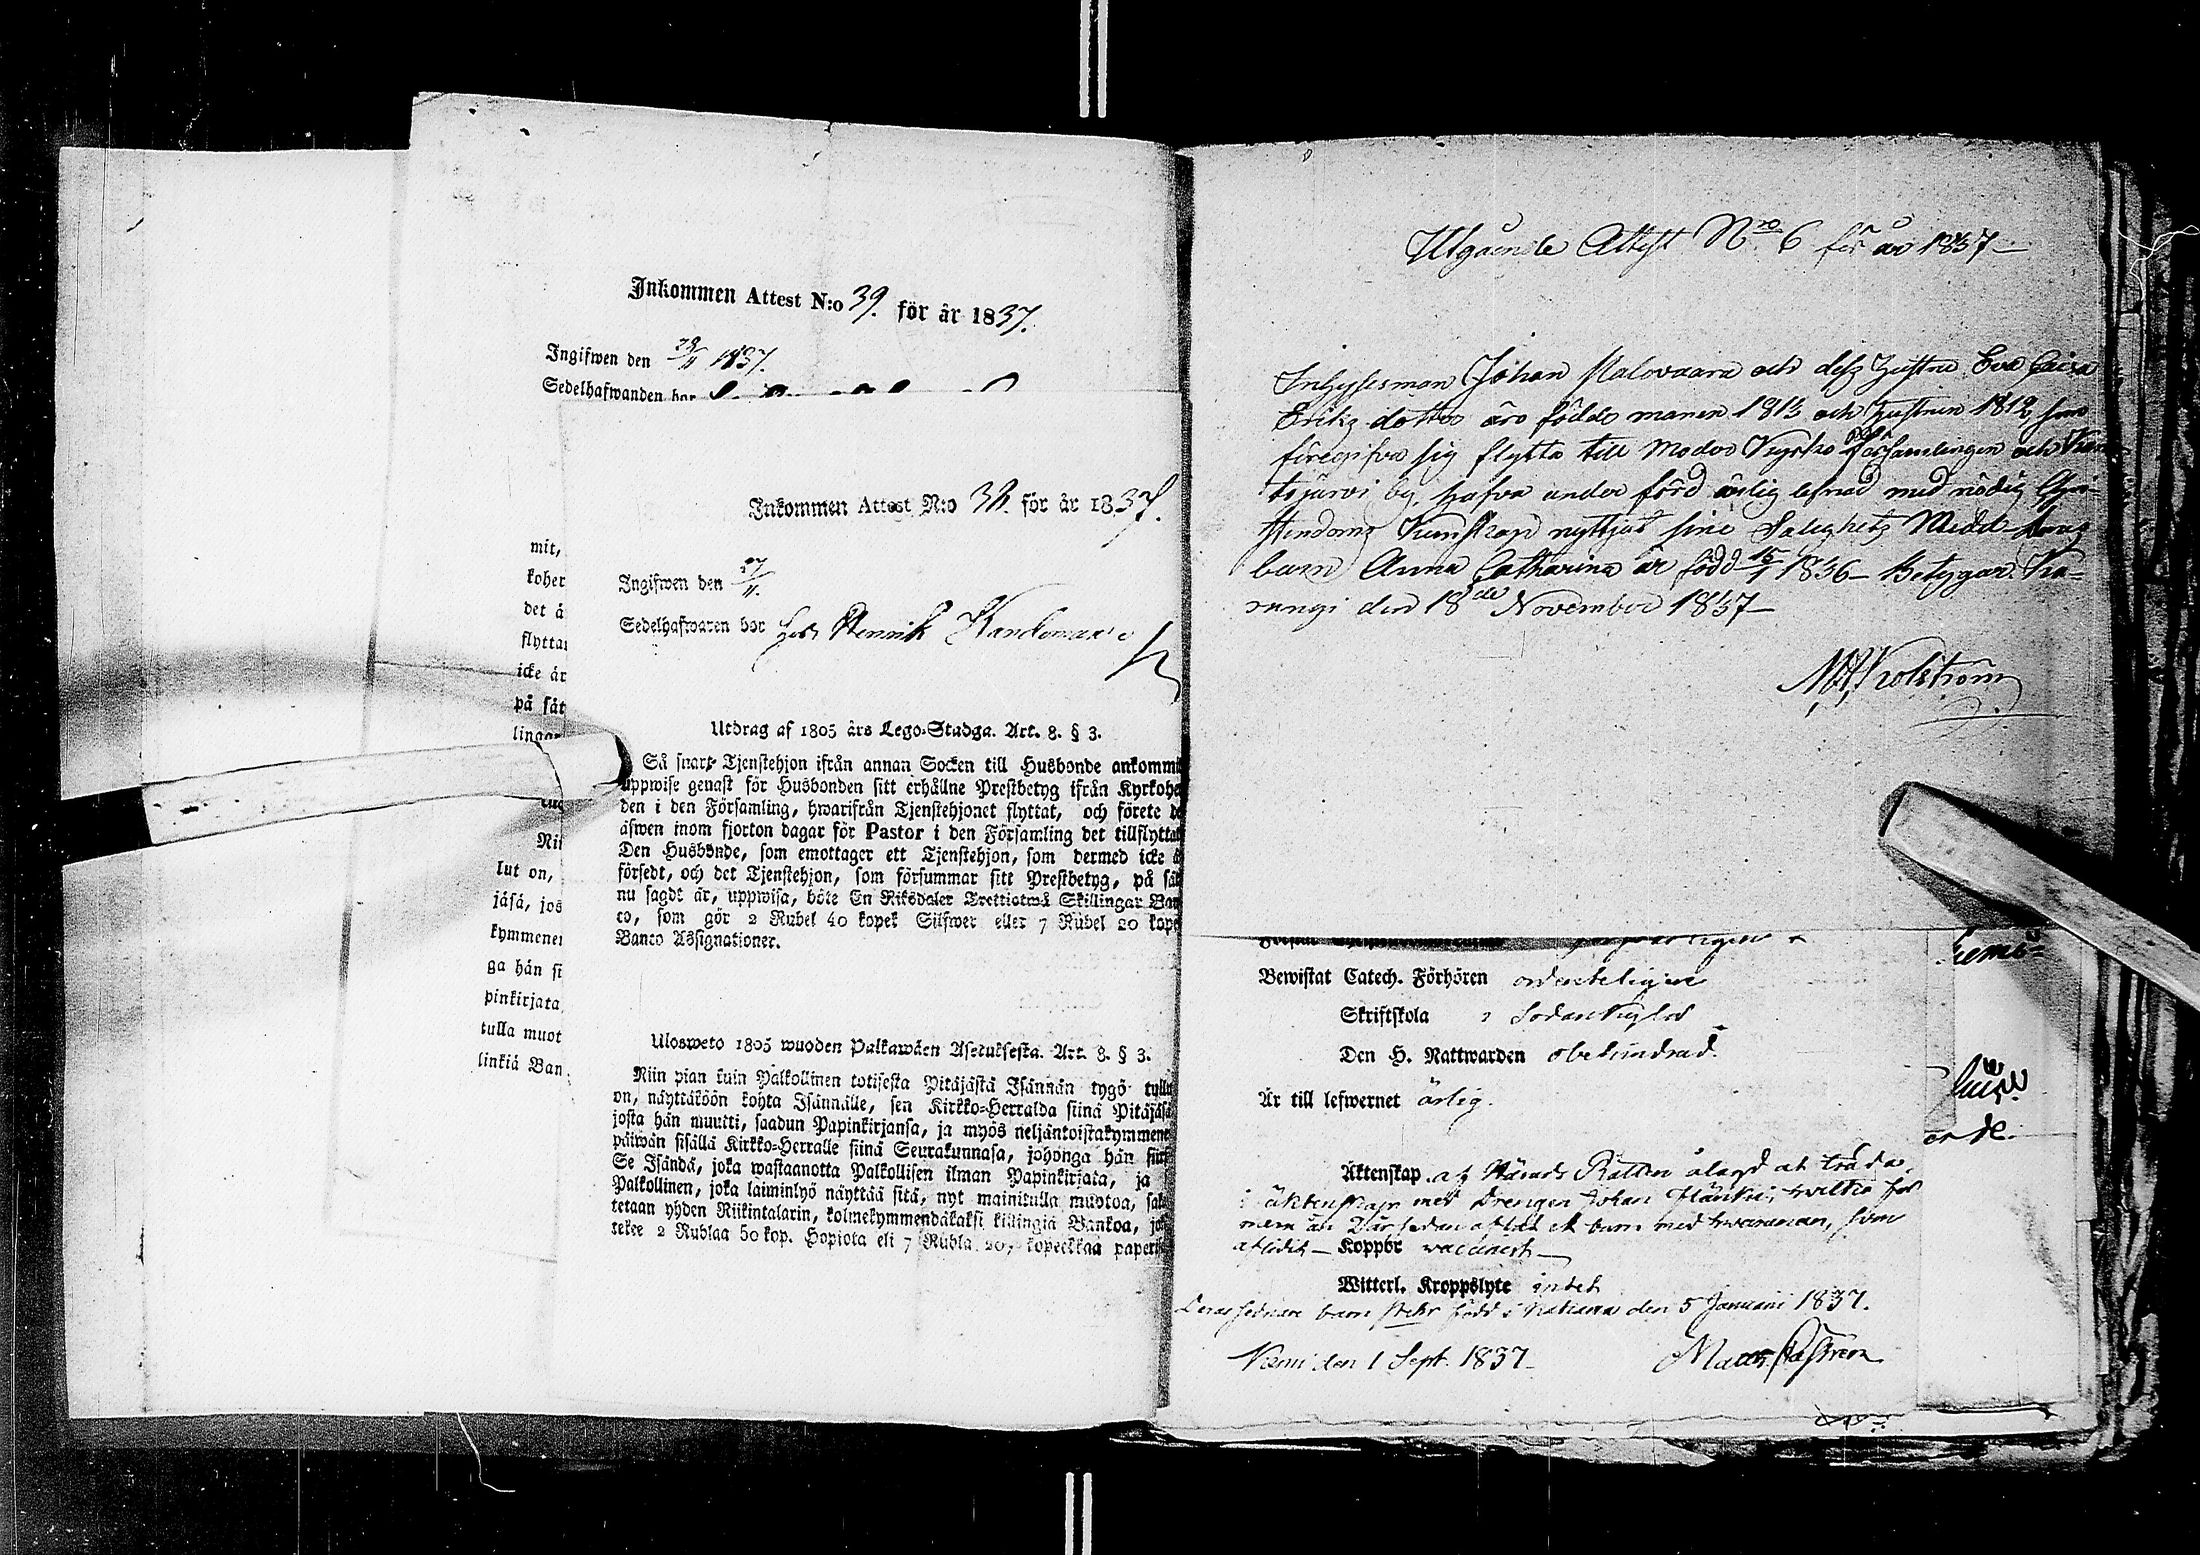 Inkommen Attest N:o 39. för år 1837.
Ingifwen den 28/11 1837.
Sedelhafwanden bor
Inkommen Attest N:o 38. för år 1837.
Ingifwen den 27/11.
Sedelhafwaren bor hos Henrik
mit,
koher
det ä
flyttat
icke är
på sät
lingar
Nii
lut on,
jäsä, jos
kymmenen
ga hän si
pinkirjata
tulla muot
linkiä Ban
Utdrag af 1805 års Lego-Stadga. Art. 8. § 3.
Så snart Tjenstehjon ifrån annan Socken till Husbonde ankommi
uppwise genast för Husbonden sitt erhållne Prestbetyg ifrån Kyrkohe
den i den Församling, hwarifrån Tjenstehjonet flyttat, och förete de
äfwen inom fjorton dagar för Pastor i den Församling det tillflyttat
Den Husbonde, som emottager ett Tjenstehjon, som dermed icke ä
försedt, och det Tjenstehjon, som försummar sitt Prestbetyg, på sät
nu sagdt är, uppwisa, böte En Riksdaler Trettiotwå Skillingar Ban
co, som gör 2 Rubel 40 kopek Silfwer eller 7 Rubel 20 kope
Banco Assignationer.
Ulosweto 1805 wuoden Palkawäen Asetuksesta. Art. 8. § 3.
Niin pian kuin Palkollinen toisesta Pitäjästä Isännän tygö tullu
on, näyttäköön kohta Isännälle, sen Kirkko-Herralda siinä Pitäjäsä
josta hän muutti, saadun Papinkirjansa, ja myös neljäntoistakymment
päiwän sisällä Kirkko-Herralle siinä Seurakunnasa, johonga hän siir
Se Isändä, joka wastaanotta Palkollisen ilman Papinkirjata, ja
Palkollinen, joka laiminlyö näyttää sitä, nyt mainitulla muotoa, sak
tetaan yhden Riikintalarin, kolmekymmendäkaksi killingiä Bankoa, jok
tekee 2 Rublaa 50 kop. Hopiota eli 7 Rubla 20 kopeekkaa paperi
Utgående Attest Nro 6 för år 1837
Inhysesman Johan Malovaara och dess hustru Eva Caisa
Eriks dotter äro födde manen 1813 och hustrun 1812, som
föregifva sig flytta till Modor Kyrko församlingen och
tojärvi by, hafva under förd ärlig lefnad med nödig Chri-
stendoms Kunskap nyttjat sine Salighets Medel deras
barn Anna Catharina är född 15/1 1836 Betygar. Ka-
rungi den 18de November 1837
Kemi-
Bewistat Catech. Förhören ordenteligen
Skriftskola i Sodankylä
Den H. Nattwarden obehindrad.
Är till lefwernet ärlig.
Äktenskap af Härads Rätten ålagd at träda
i äktenskap med Drengen Johan, hvilken för
mera än år sedan aflat et barn med qwinnan, som
aflidit Koppor vaccinerad
Witterl. Kroppslyte intet
Deras sednare barn född i den 5 Januarii 1837.
Kemi den 1 Sept. 1837
Matts Castrén